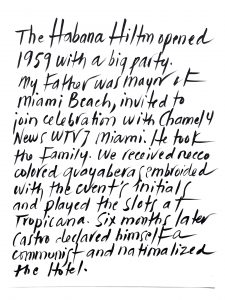 The Habana Hilton opened
1959 with a big party.
My Father was mayor of
Miami Beach, invited to
join celebration with Channel 4
News WTVJ Miami. He took
the Family. We received
colored guayaberas embroided
with the event's initials
and played the slots at
Tropicana. Six months later
Castro declared himself a
communist and nationalized
the Hotel.